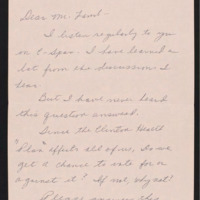 Dear Mr. Lamb -
I listen regularly to you
on C-Span. I have learned a
lot from the discussions I
hear.
But I have never heard
this question answered.
Since the Clinton Health
"Plan" effects all of us, do we
get a chance to vote for or
against it? If not, why not?
Please answer this